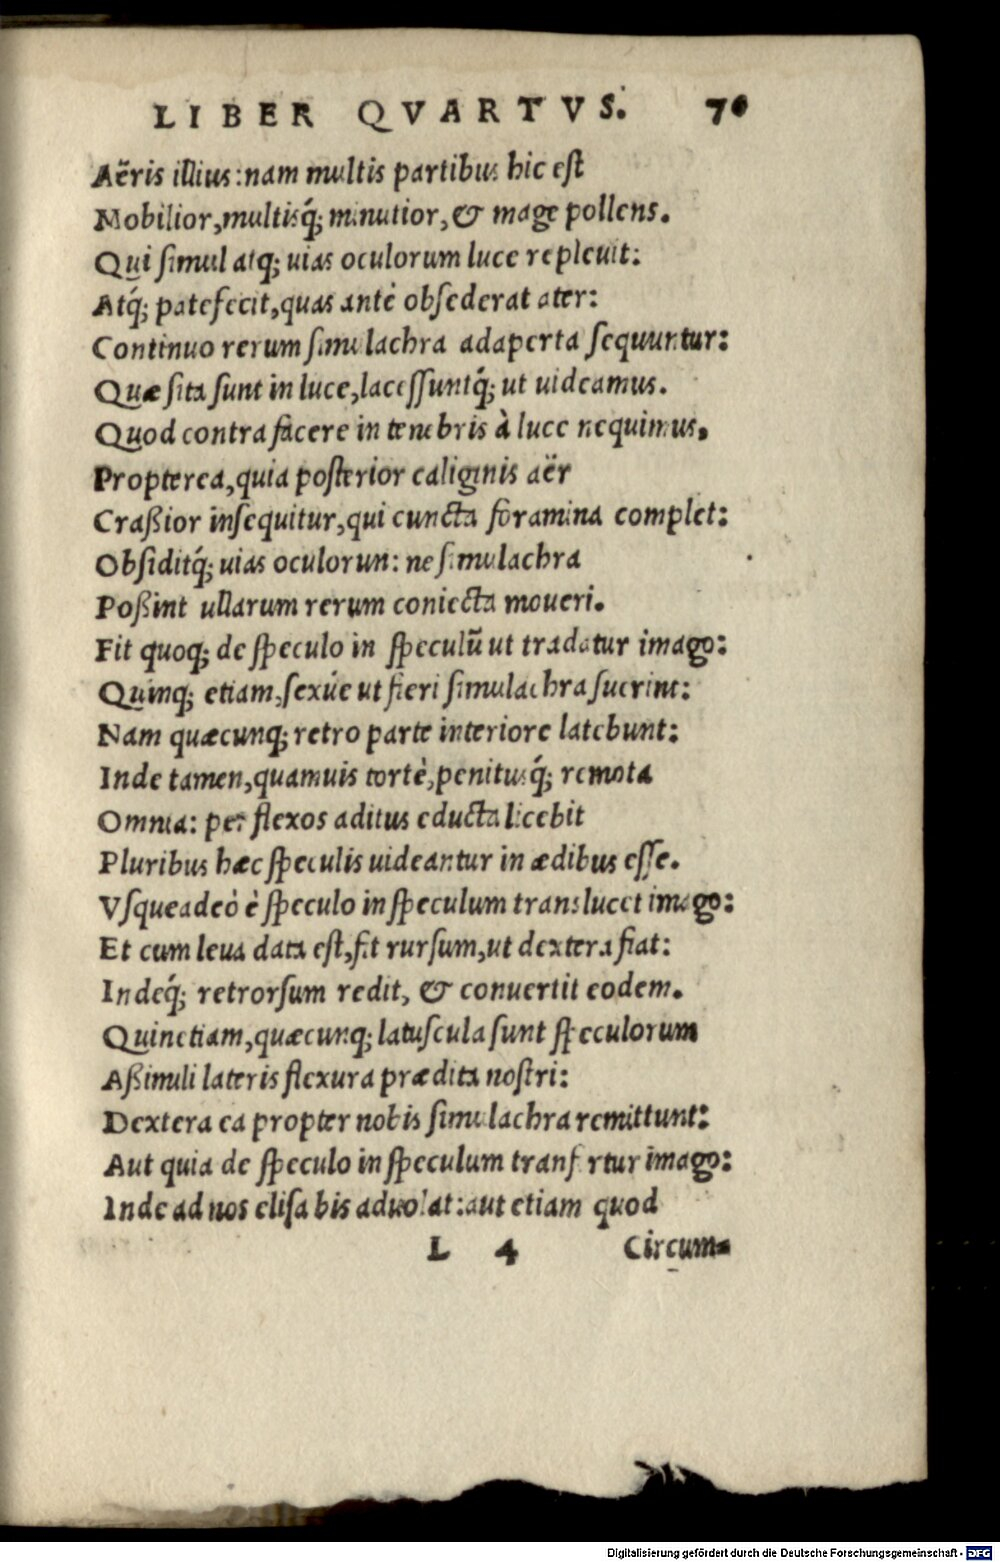 LIBER QVARTVS. 70
Aëris illius: nam multis partibus hic est
Mobilior, multisq́; minutior, & mage pollens.
Qui simul atq; uias oculorum luce repleuit:
Atq́; patefecit, quas antè obsederat ater:
Continuo rerum simulachra adaperta sequuntur:
Quæ sita sunt in luce, lacessuntq́; ut uideamus.
Quod contra facere in tenebris à luce nequimus,
Propterea, quia posterior caliginis aër
Craßior insequitur, qui cuncta foramina complet:
Obsiditq́; uias oculorun: ne simulachra
Poßint ullarum rerum coniecta moueri.
Fit quoq; de speculo in speculũ ut tradatur imago:
Quinq; etiam, sexúe ut fieri simulachra suerint:
Nam quæcunq; retro parte interiore latebunt:
Inde tamen, quamuis tortè, penitusq́; remota
Omnia: per flexos aditus educta licebit
Pluribus hæc speculis uideantur in ædibus esse.
Vsqueadeò è speculo in speculum translucet imago:
Et cum leua data est, fit rursum, ut dextera fiat:
Indeq́; retrorsum redit, & conuertit eodem.
Quinetiam, quæcunq; latuscula sunt speculorum
Aßimili lateris flexura prædita nostri:
Dextera ea propter nobis simulachra remittunt:
Aut quia de speculo in speculum transfertur imago:
Inde ad nos elisa bis aduolat: aut etiam quod
L 4 Circum-
Digitalisierung gefördert durch die Deutsche Forschungsgemeinschaft - DFG